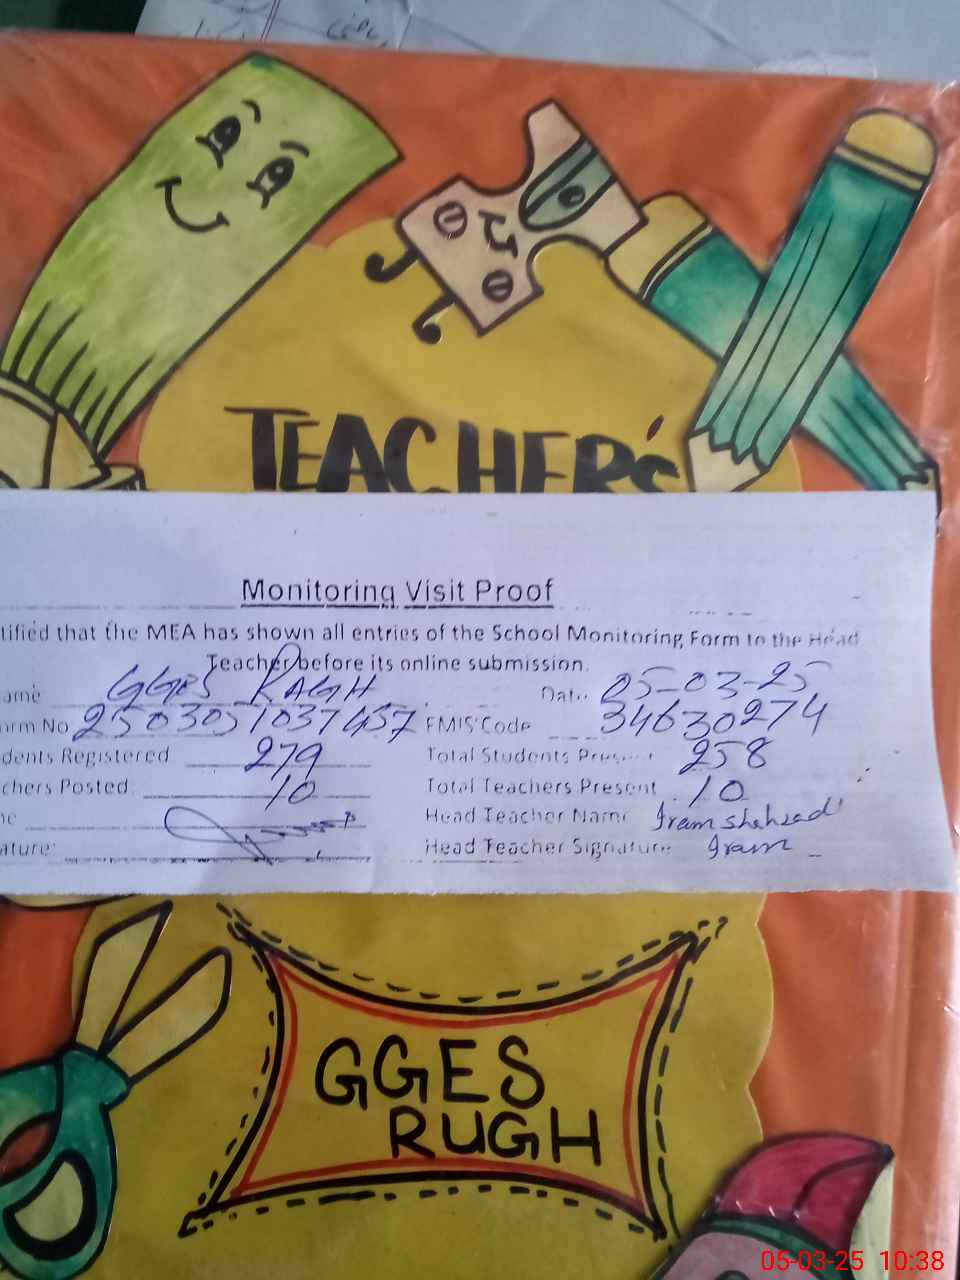 TEACHER's
Monitoring Visit Proof
tified that the MEA has shown all entries of the School Monitoring Form to the Head
Teacher before its online submission.
ame GGES RAGH Date 05-03-25
orm No 2503051037457 EMIS Code 34630274
dents Registered 279 Total Students Present 258
chers Posted 10 Total Teachers Present 10
Head Teacher Name Iram shahzad
ature: Head Teacher Signature Iram
GGES
RUGH
05-03-25 10:38